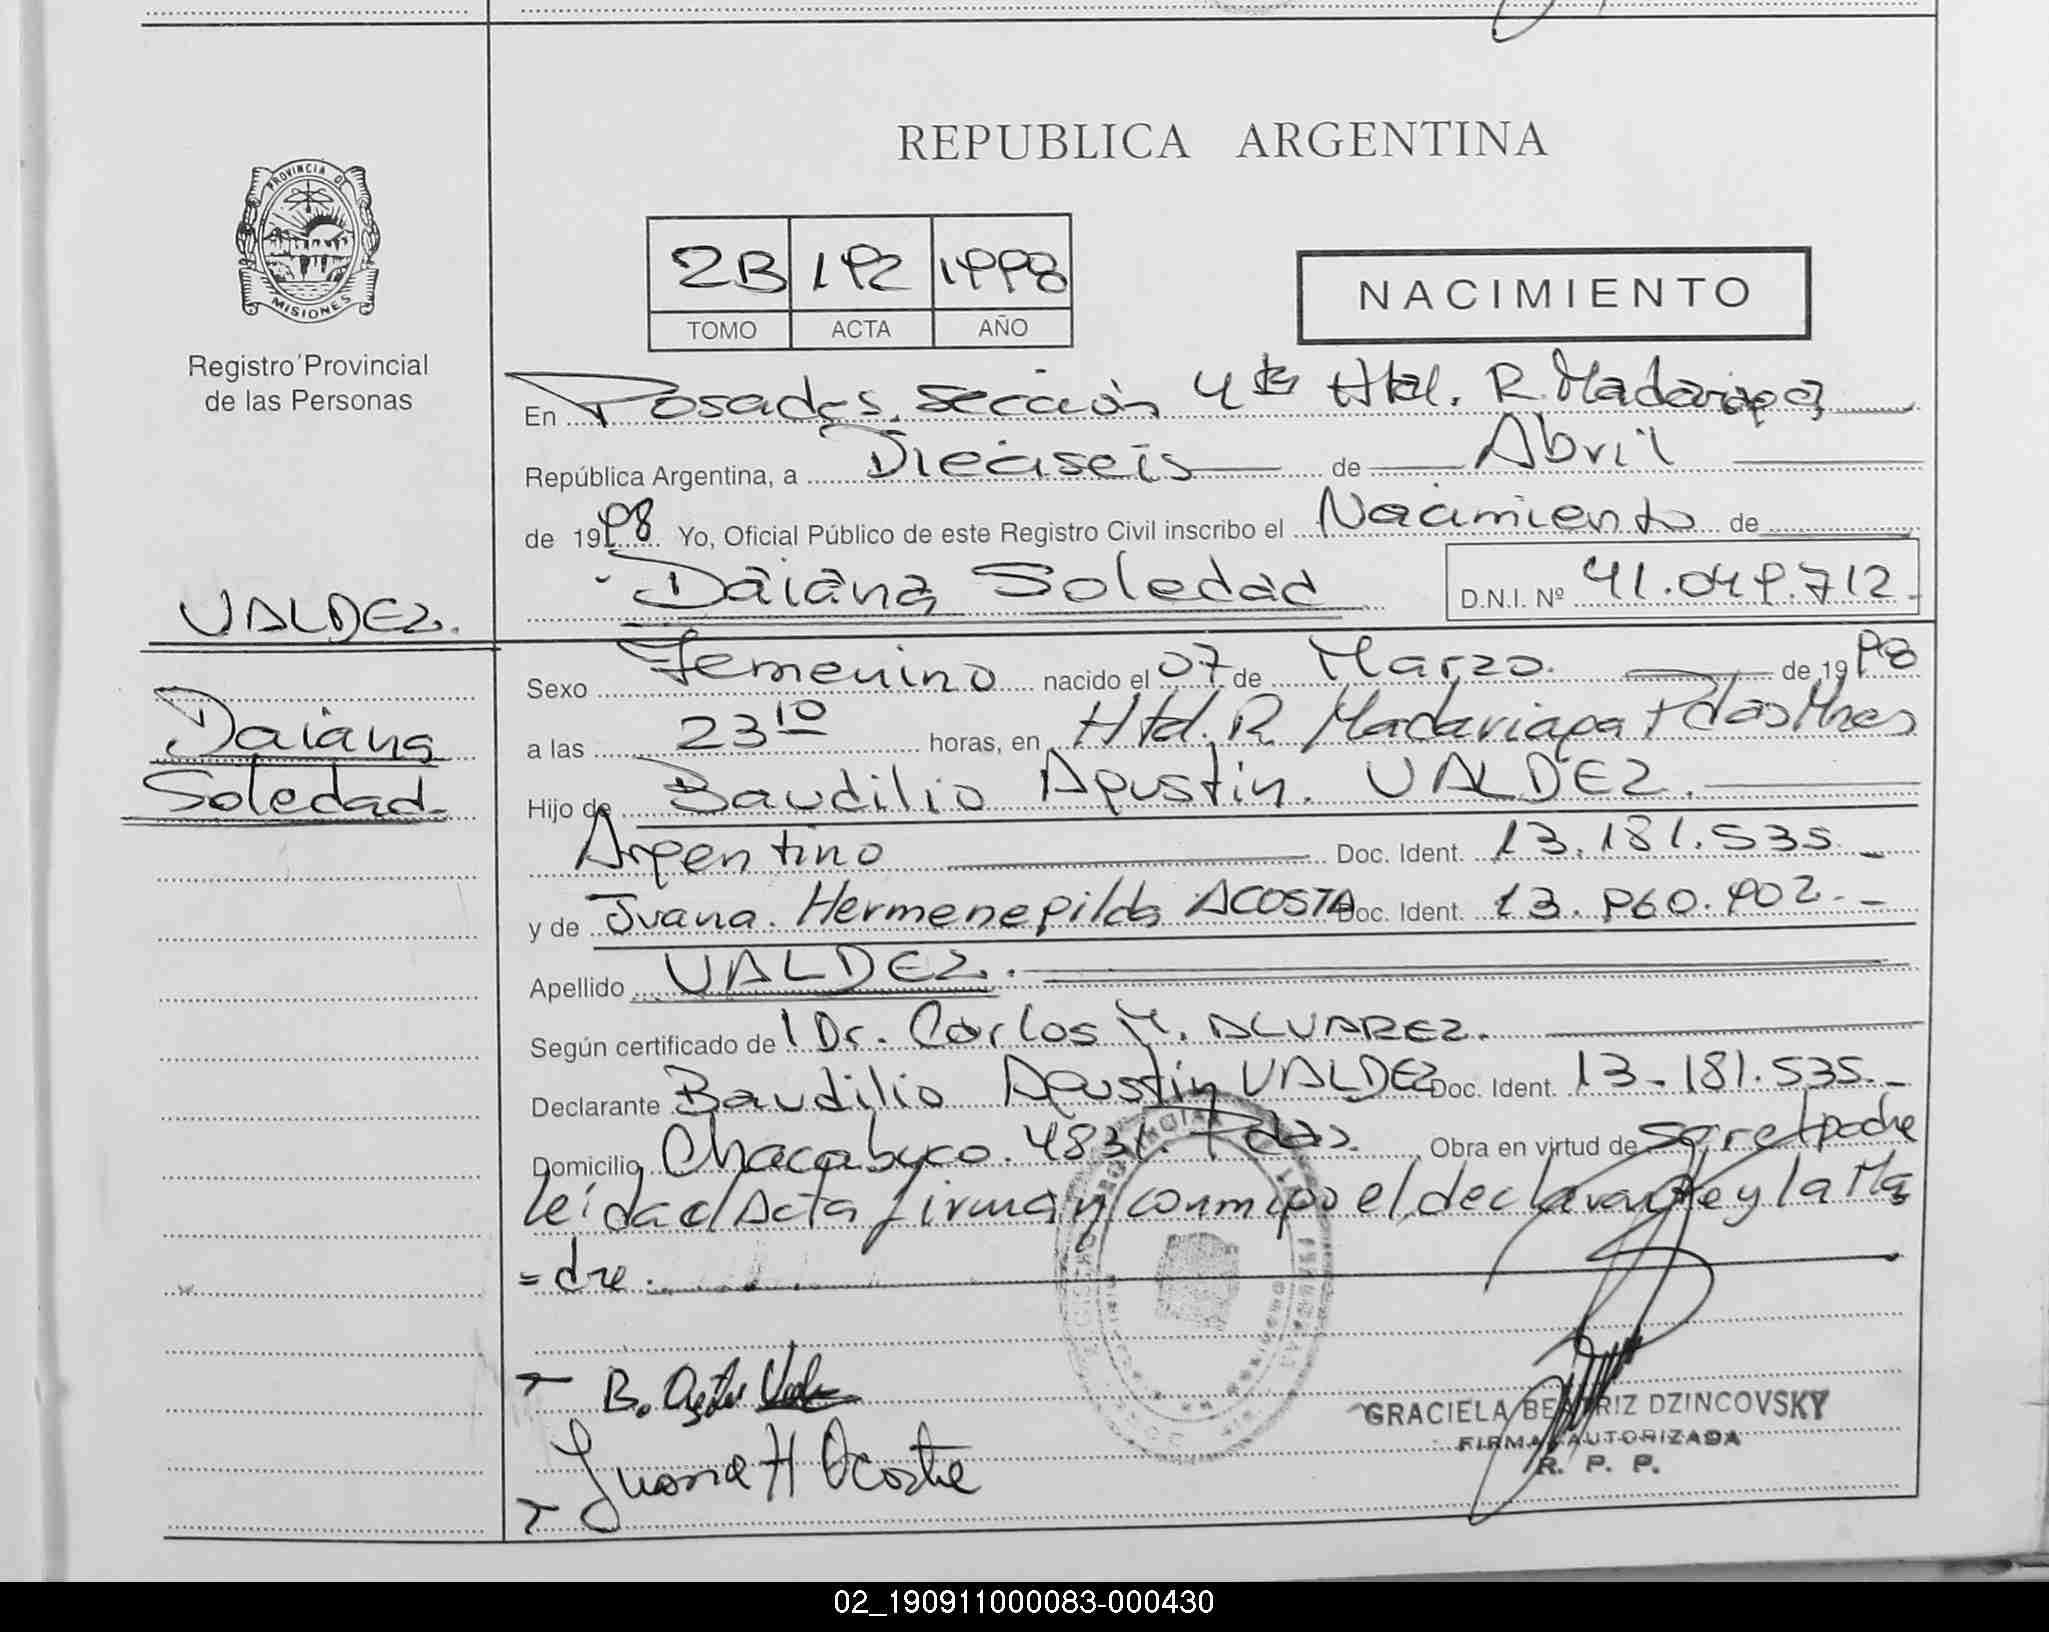 REPUBLICA ARGENTINA
PROVINCIA DE
MISIONES
Registro Provincial
de las Personas
2B 192 1998
TOMO ACTA AÑO
NACIMIENTO
En Posadas, sección 4ta Htal. R. Madariaga
República Argentina, a Dieciseis de Abril
de 1998 Yo, Oficial Público de este Registro Civil inscribo el Nacimiento de
Daiana Soledad D.N.I. Nº 41.049.712.-
VALDEZ.
Daiana
Soledad.
Sexo Femenino nacido el 07 de Marzo. de 1998
a las 23 10 horas, en Htal. R. Madariaga Pdas Mnes
Hijo de Baudilio Agustin. VALDEZ.
Argentino Doc. Ident. 13.181.535.-
y de Juana. Hermenegilda ACOSTA Doc. Ident. 13.960.902.-
Apellido VALDEZ.
Según certificado de Dr. Carlos M. ALVAREZ.
Declarante Baudilio Agustin VALDEZ Doc. Ident. 13-181.535.-
Domicilio Chacabuco. 4831. Pdas. Obra en virtud de ser el padre
leída el Acta firman conmigo el declarante y la Ma
=dre.
B. Agtin
Juana H Acosta
GRACIELA BEATRIZ DZINCOVSKY
FIRMA AUTORIZADA
R. P. P.
02_190911000083-000430